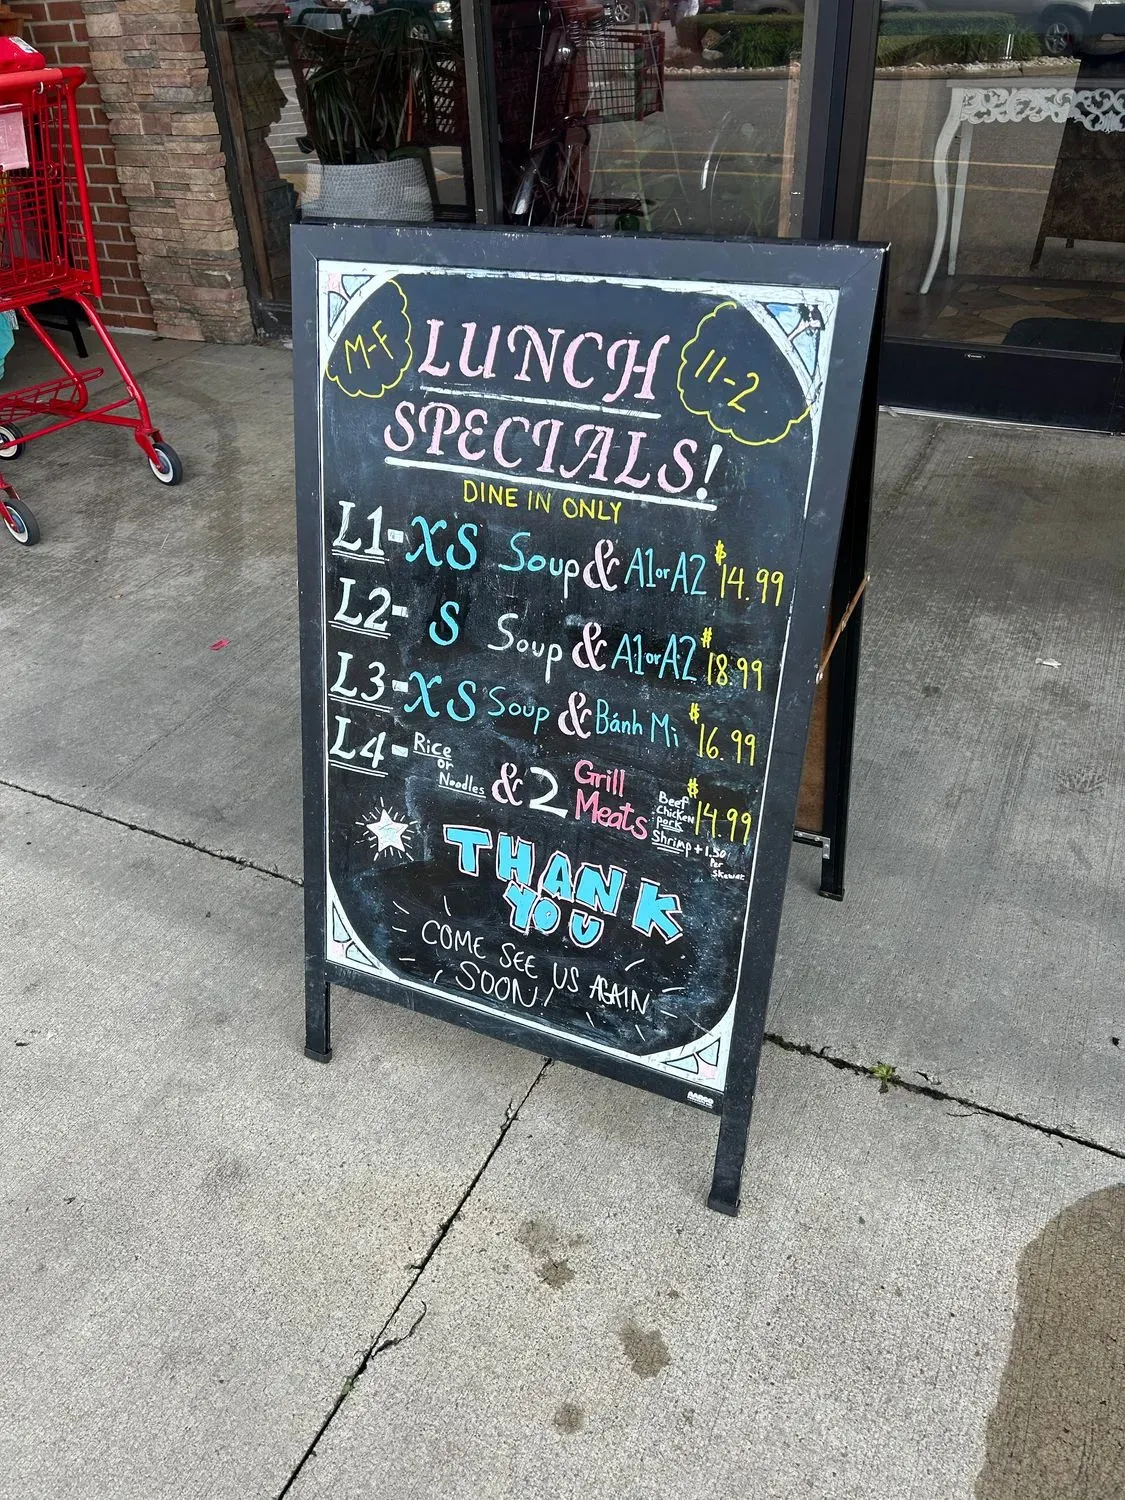 M-F
LUNCH
11-2
SPECIALS!
DINE IN ONLY
L1- XS Soup & A1 or A2 $14.99
L2- S Soup & A1 or A2 $18.99
L3- XS Soup & Bánh Mi $16.99
L4- Rice or Noodles & 2 Grill Meats $14.99
Beef
Chicken
pork
Shrimp +1.50
Per
Skewer
THANK
YOU
COME SEE US AGAIN
SOON!